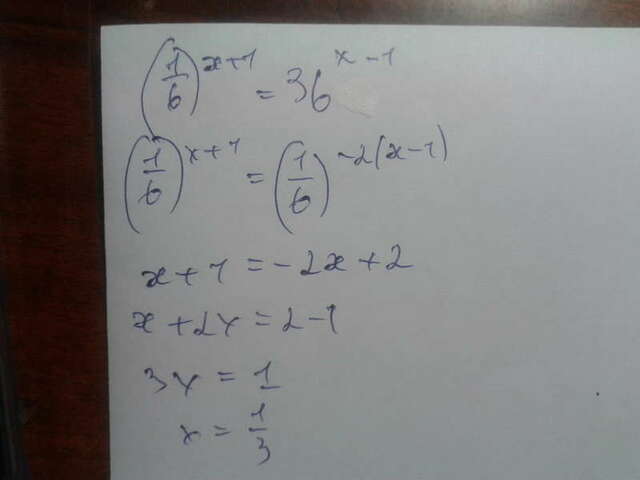 (1/6)^(x+1) = 36^(x-1)
(1/6)^(x+1) = (1/6)^(-2(x-1))
x+1=-2x+2
x+2x=2-1
3x=1
x=1/3